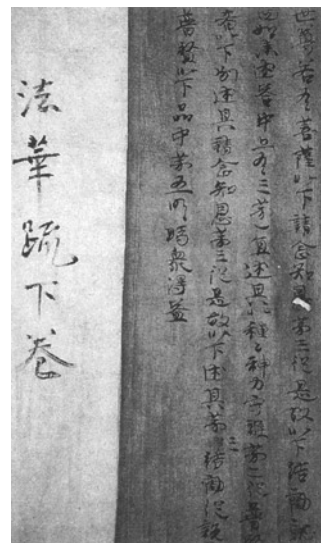 世尊若有菩薩以下請令知恩第三從是故以下結勸
如來述答中亦有三第一直述其以種々神力守護第二從
以下別述其請令知恩第三從是故以下述其第三結勸從說
普賢以下品中第五明時衆得益
法華疏下巻